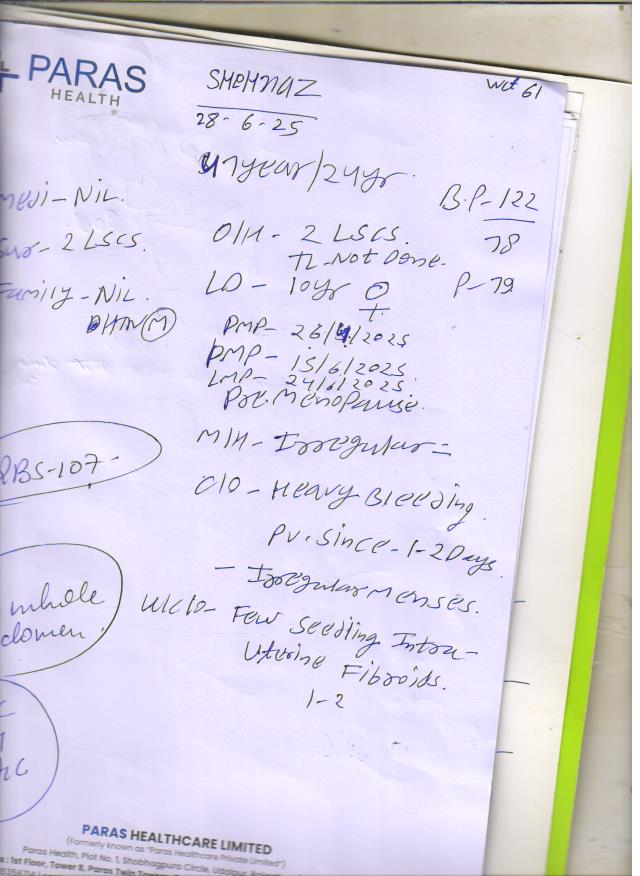 PARAS
HEALTH
SHEHNAZ
Wt 61
28-6-25
47year/24yr.
B.P-122
78
Medi-NIL.
O/H- 2 LSCS.
Sur-2 LSCS.
TL-Not Done.
P-79
LD- 10yr ♀
Family-NIL.
DHTN (M)
PMP- 26/4/2025
PMP- 15/6/2025
LMP- 24/6/2025
Pre.Menopause.
M/H- Irregular=
RBS-107-
C/O- Heavy Bleeding
PV. Since-1-2Days
- Irregular Menses.
whole
domen.
U/C/O- Few Seedling Intra-
Uterine Fibroids.
1-2
PARAS HEALTHCARE LIMITED
(Formerly known as "Paras Healthcare Private Limited")
Paras Health, Plot No. 1, Shobhagpura Circle, Udaipur,
: 1st Floor, Tower B, Paras Twin